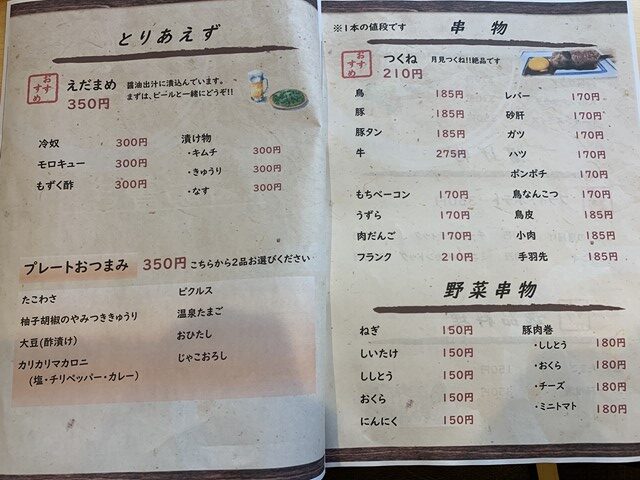 とりあえず
おすすめ
えだまめ 醤油出汁に漬込んでいます。
350円 まずは、ビールと一緒にどうぞ!!
冷奴 300円
モロキュー 300円
もずく酢 300円
漬け物
・キムチ 300円
・きゅうり 300円
・なす 300円
プレートおつまみ 350円 こちらから2品お選びください
たこわさ
柚子胡椒のやみつききゅうり
大豆(酢漬け)
カリカリマカロニ
(塩・チリペッパー・カレー)
ピクルス
温泉たまご
おひたし
じゃこおろし
※1本の値段です
串物
おすすめ
つくね 月見つくね!!絶品です
210円
鳥 185円
豚 185円
豚タン 185円
牛 275円
もちベーコン 170円
うずら 170円
肉だんご 170円
フランク 210円
レバー 170円
砂肝 170円
ガツ 170円
ハツ 170円
ボンボチ 170円
鳥なんこつ 170円
鳥皮 185円
小肉 185円
手羽先 185円
野菜串物
ねぎ 150円
しいたけ 150円
ししとう 150円
おくら 150円
にんにく 150円
豚肉巻
・ししとう 180円
・おくら 180円
・チーズ 180円
・ミニトマト 180円